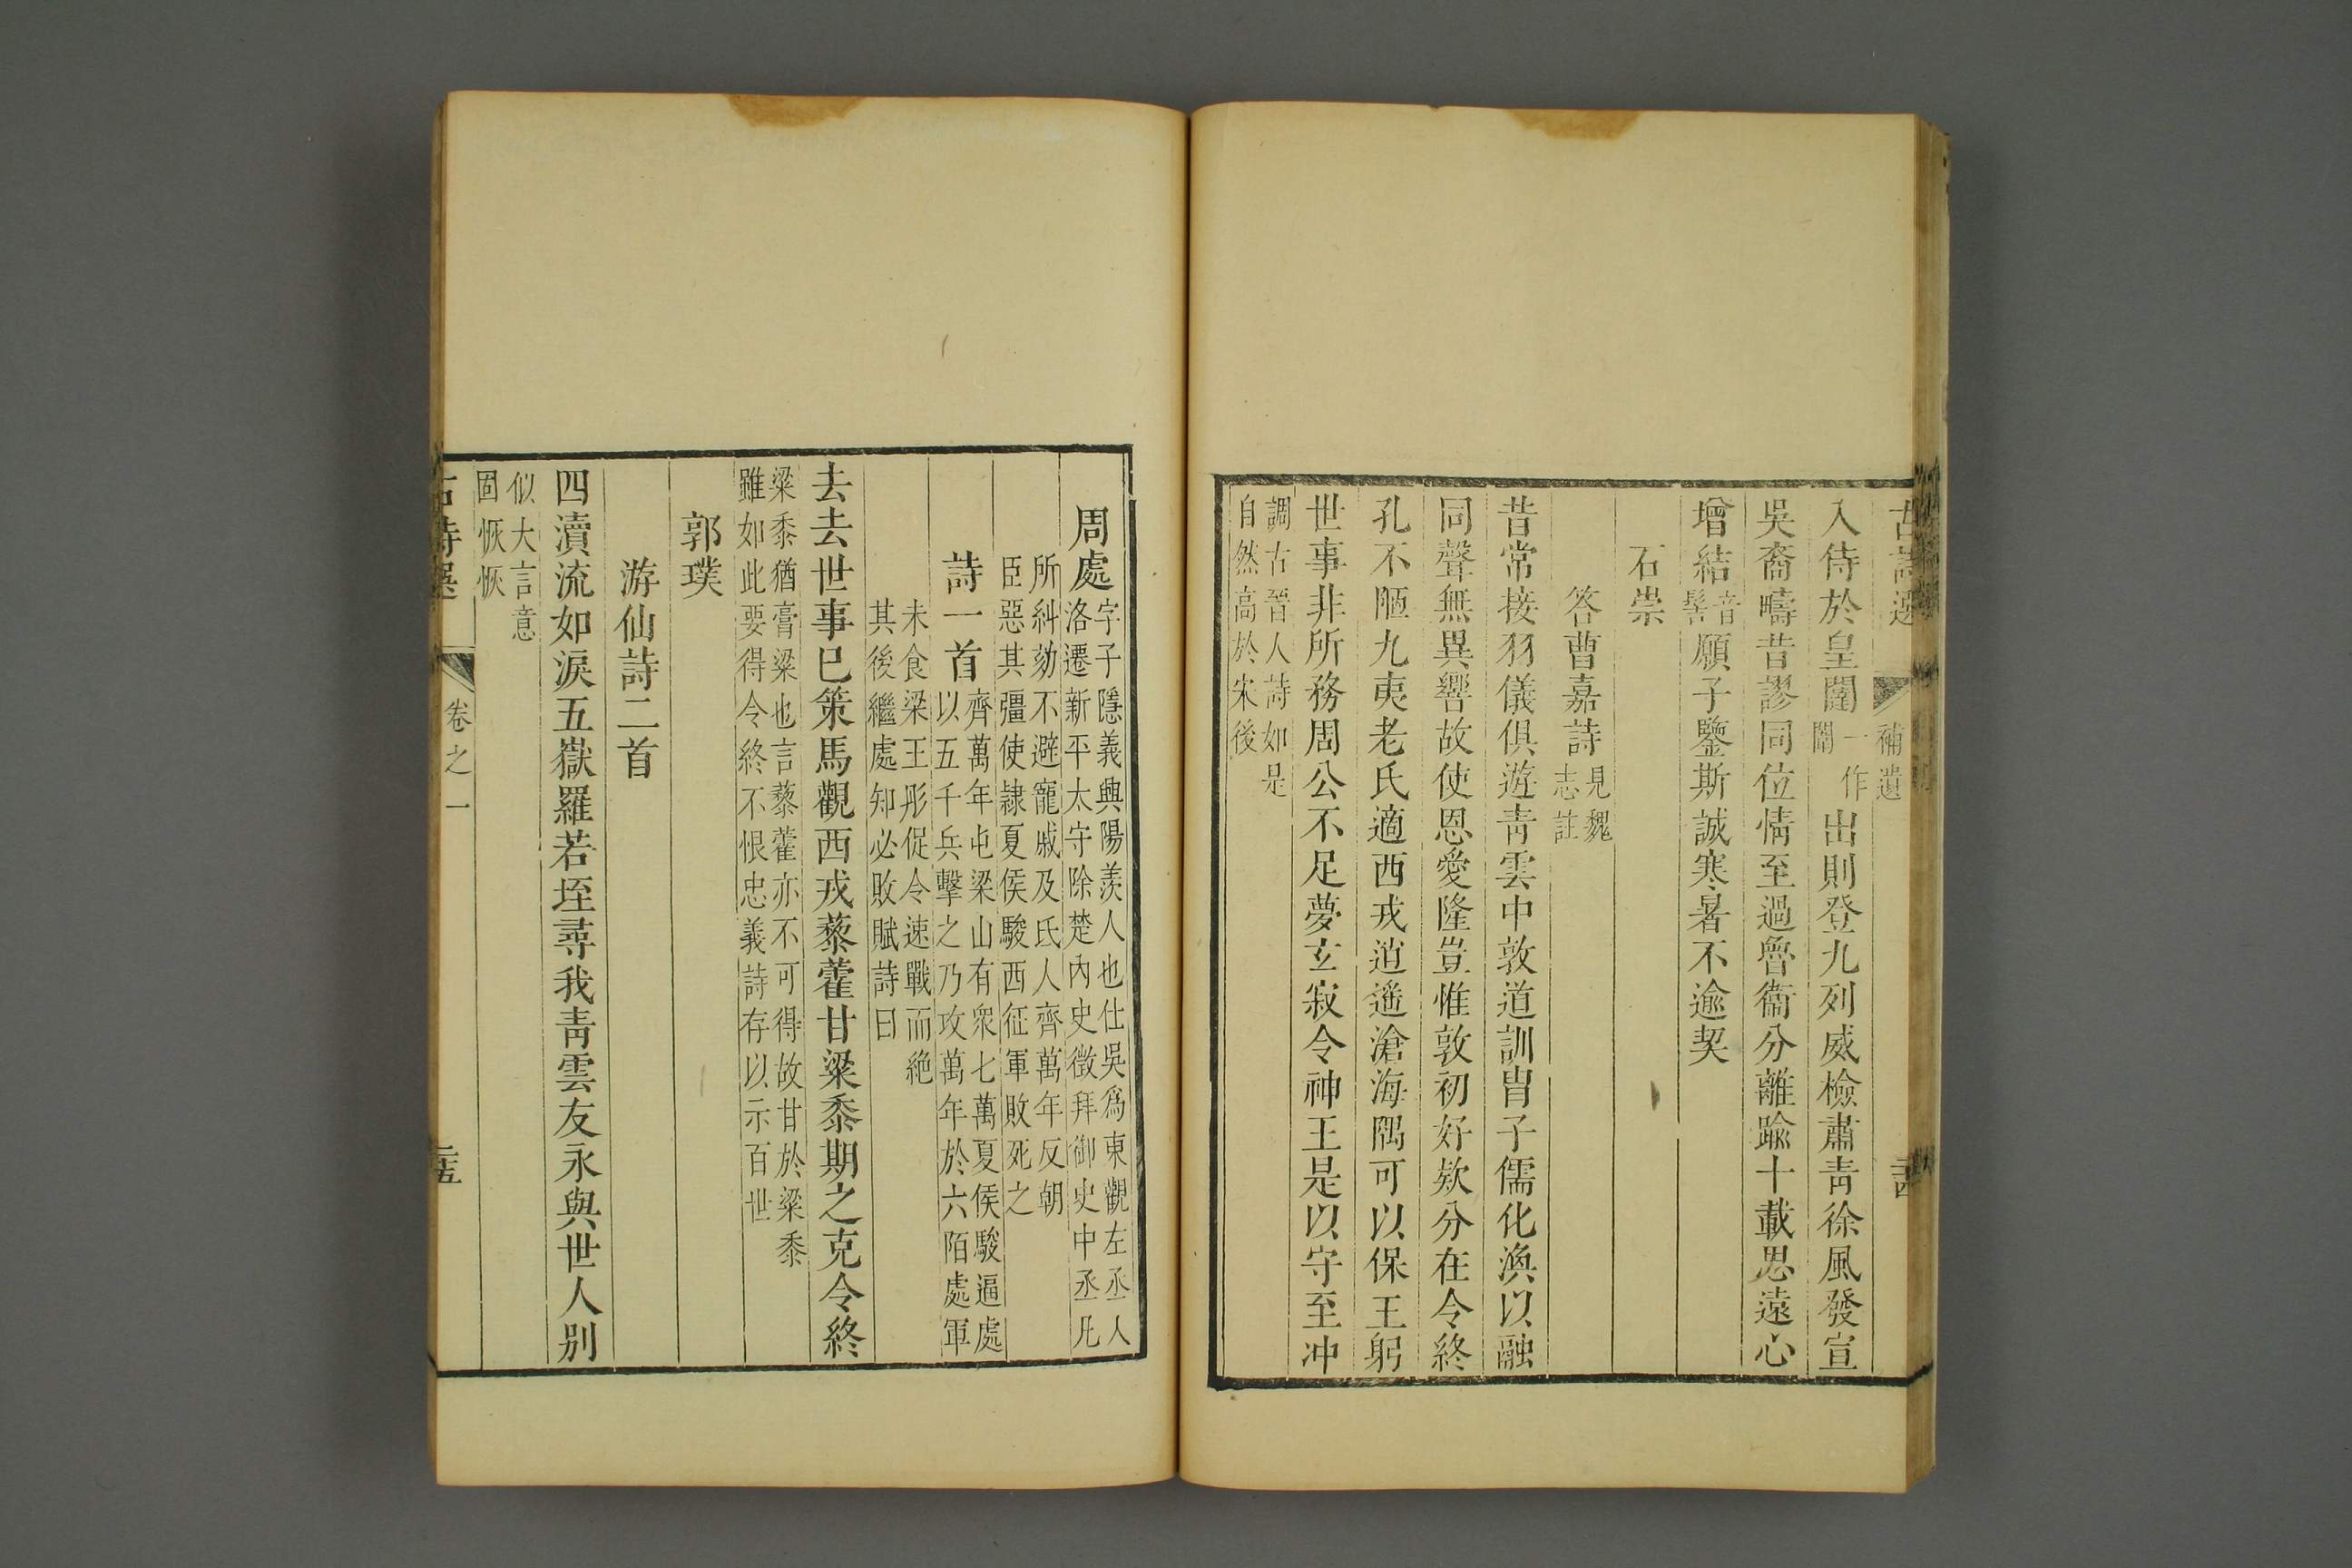 古詩選 補遺 二十四
入侍於皇闥一作闈出則登九列威檢肅青徐風發宣
吳裔疇昔謬同位情至過魯衞分離踰十載思遠心
增結音髻願子鑒斯誠寒暑不逾契
石崇
答曹嘉詩見魏志註
昔常接羽儀俱遊青雲中敦道訓胄子儒化渙以融
同聲無異響故使恩愛隆豈惟敦初好欵分在令終
孔不陋九夷老氏適西戎逍遙滄海隅可以保王躬
世事非所務周公不足夢玄寂令神王是以守至沖
調古晉人詩如是
自然高於宋後
周處字子隱義興陽羡人也仕吳爲東觀左丞人
洛遷新平太守除楚內史徵拜御史中丞凡
所糾劾不避寵戚及氐人齊萬年反朝
臣惡其彊使隷夏侯駿西征軍敗死之
詩一首齊萬年屯梁山有衆七萬夏侯駿逼處
以五千兵擊之乃攻萬年於六陌處軍
未食梁王肜促令速戰而絶
其後繼處知必敗賦詩曰
去去世事已策馬觀西戎藜藿甘粱黍期之克令終
粱黍猶膏粱也言藜藿亦不可得故甘於粱黍
雖如此要得令終不恨忠義詩存以示百世
郭璞
游仙詩二首
四瀆流如淚五嶽羅若垤尋我青雲友永與世人别
似大言意
固恢恢
古詩選 卷之一 二十五